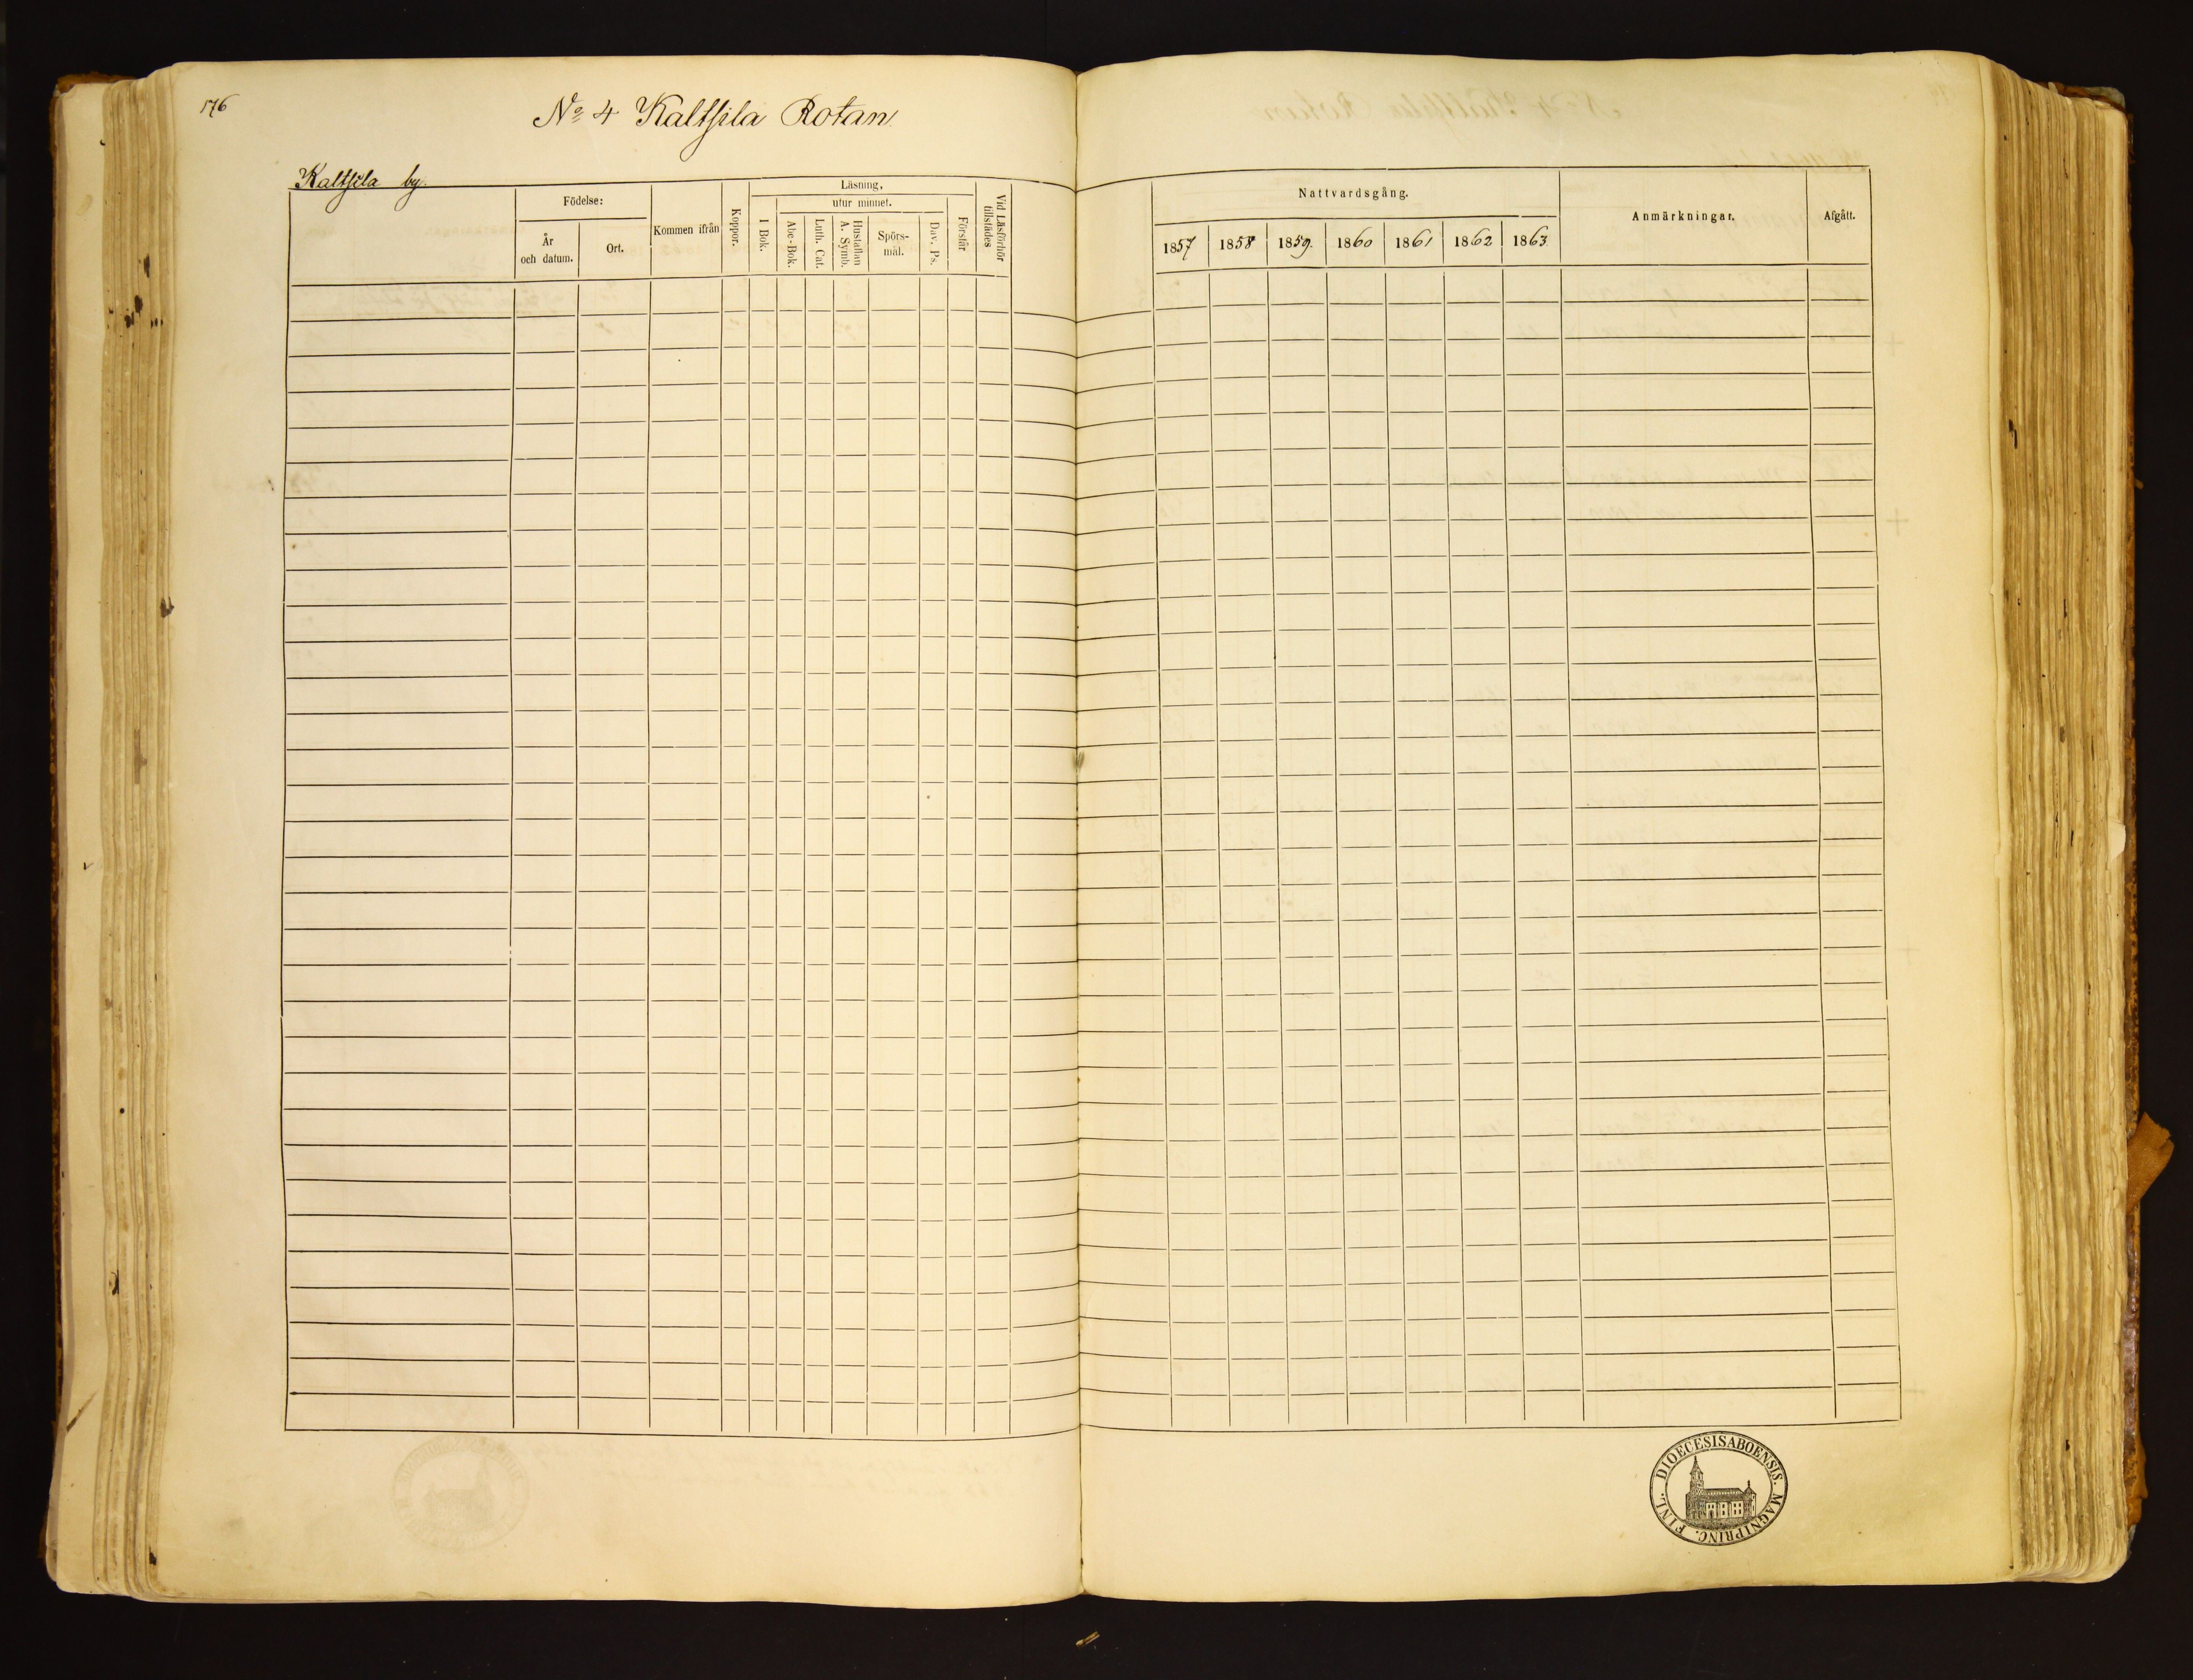 176
No 4 Kaltsila Rotan
Kaltsila by.
Födelse:
År
och datum.
Ort.
Kommen ifrån
Koppor.
Läsning,
utur minnet.
I Bok.
Abc-Bok.
Luth. Cat.
Hustaflan
A. Symb.
Spörs-
mål.
Dav. Ps.
Förstår
Vid Läsförhör
tillstädes
Nattvardsgång.
1857 1858 1859. 1860 1861 1862 1863
Anmärkningar.
Afgått.
DIOECESIS ABOENSIS. MAGNI PRINC. FINL.